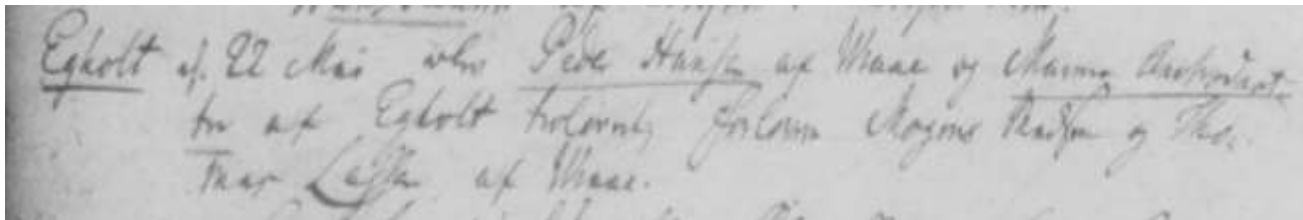 Egholt d. 22 Maii blev Peder Hansen af Maae og Maren Andersdat-
ter af Egholt trolovede, forlovere Mogens Madsen og Tho-
mas Lassen af Maae.